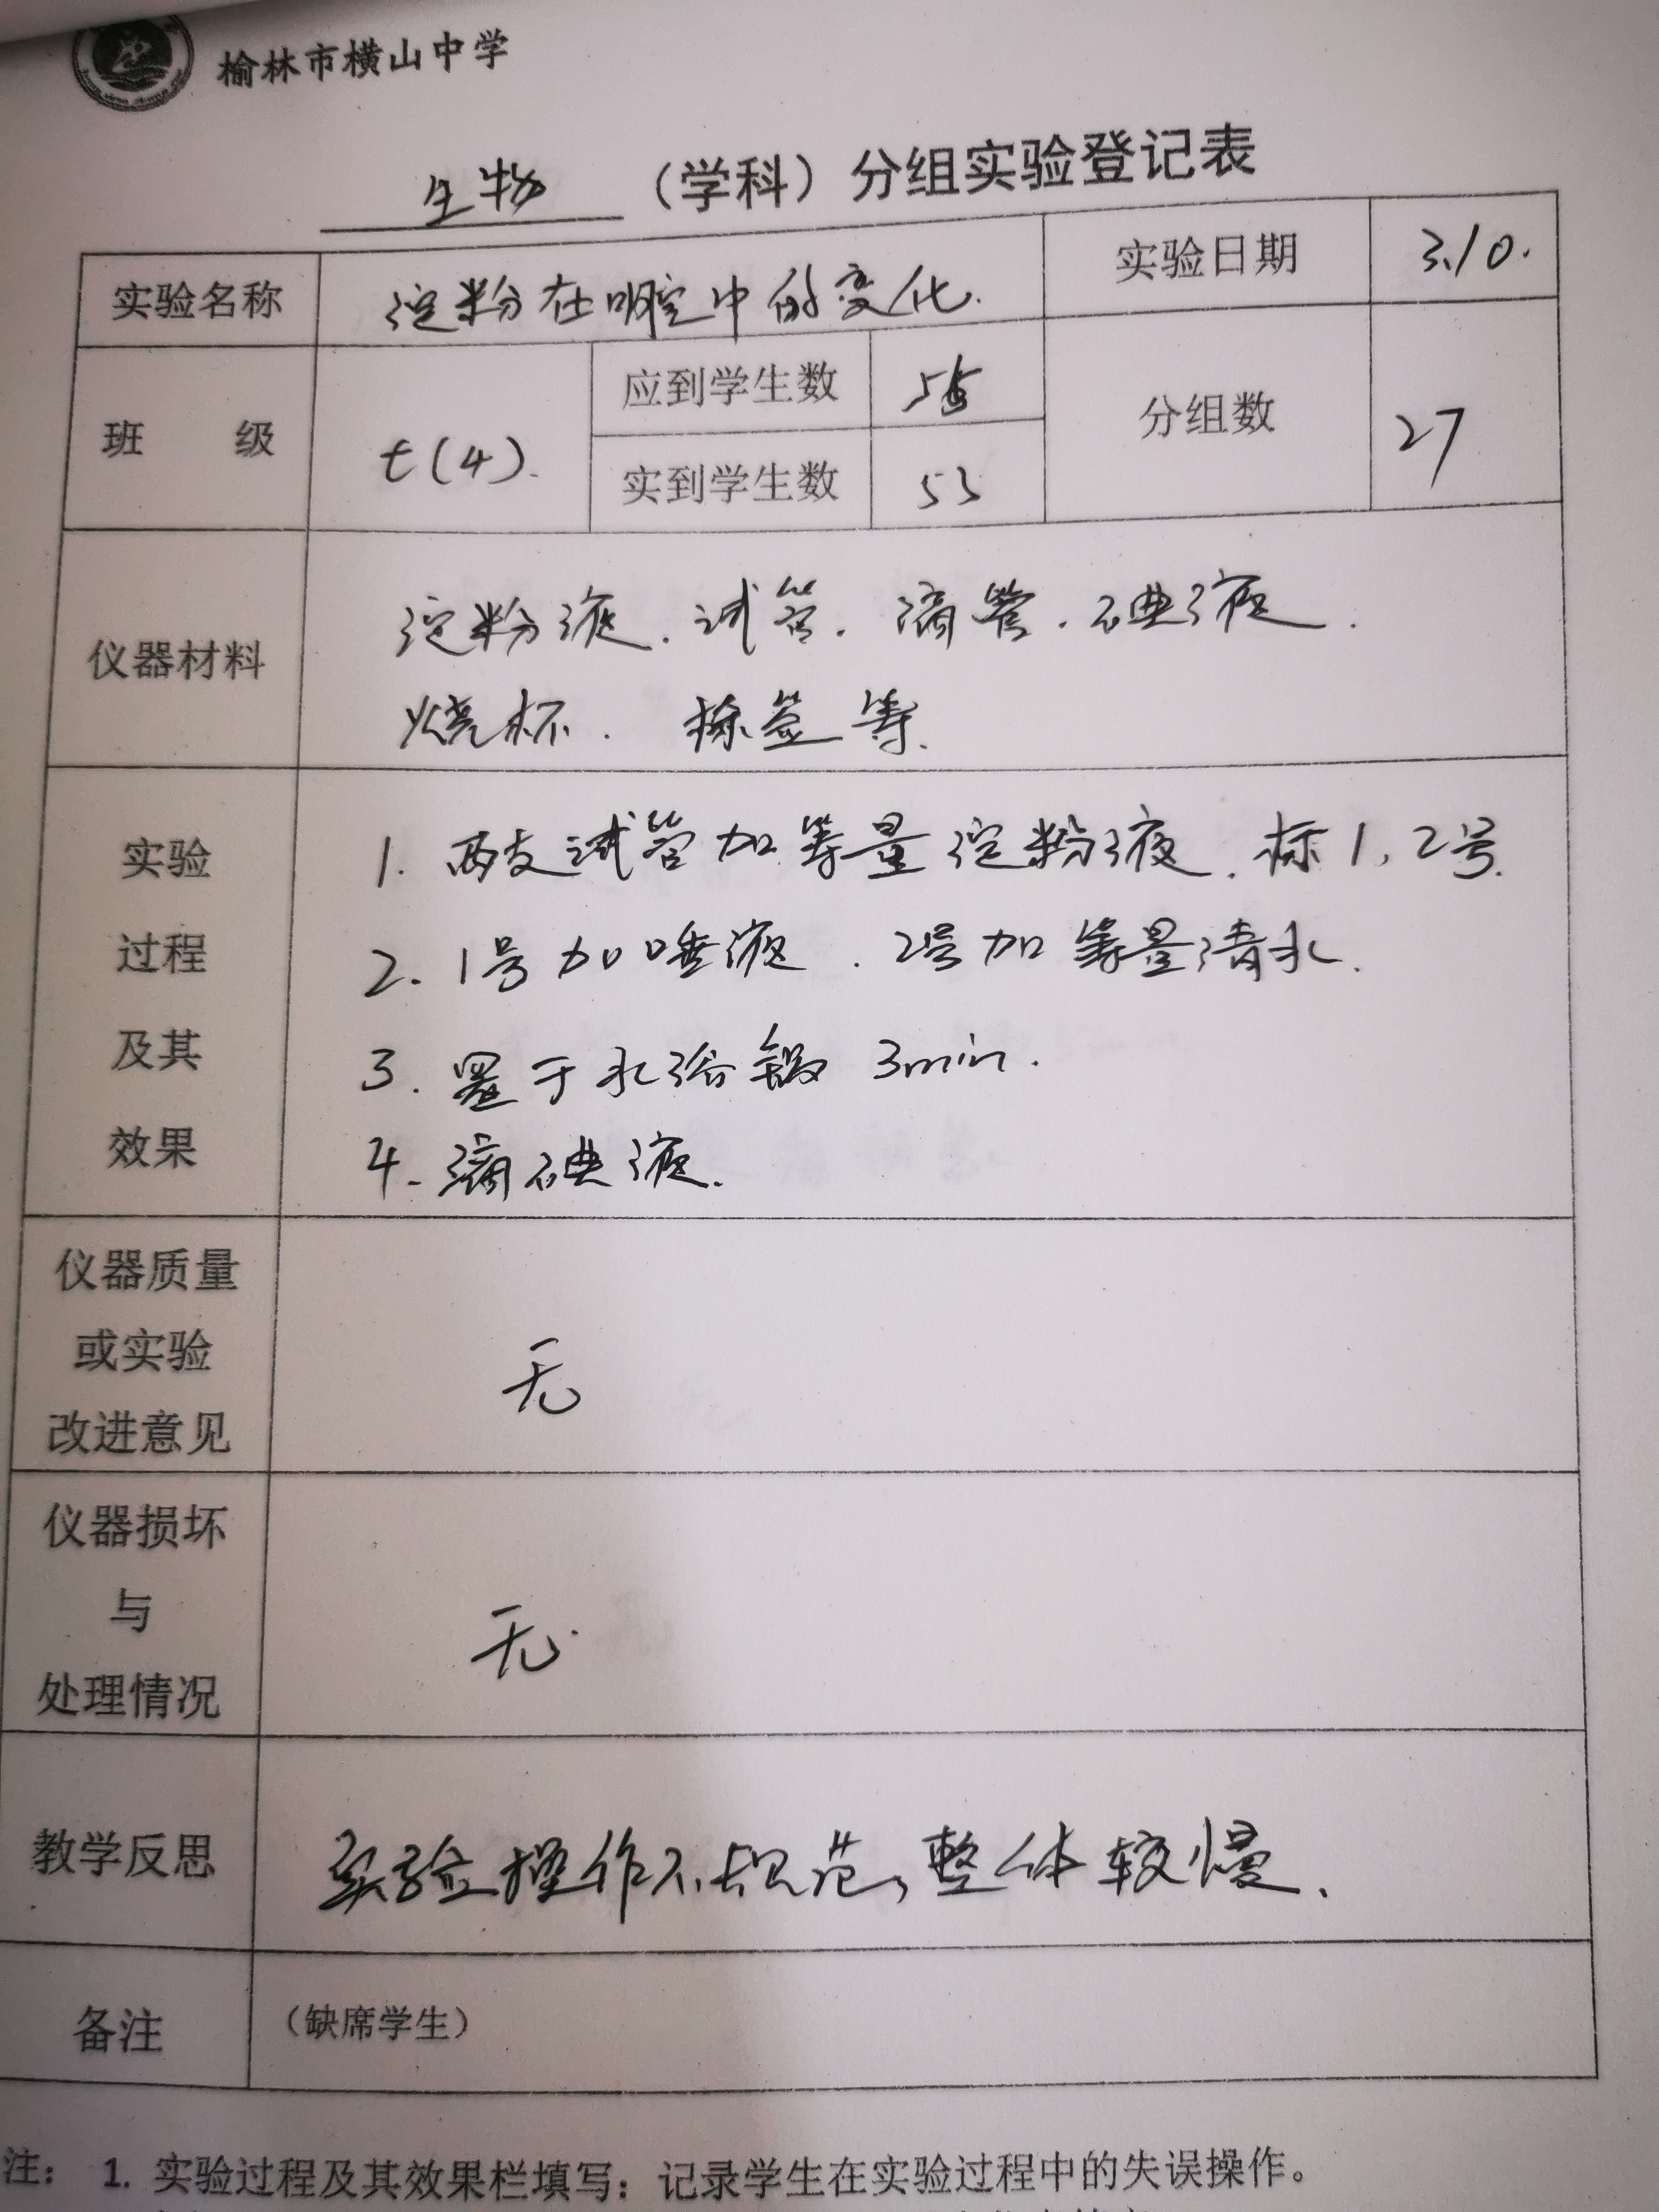 榆林市横山中学
生物 （学科）分组实验登记表
实验名称 淀粉在口腔中的变化. 实验日期 3.10.
班 级 七(4). 应到学生数 分组数 27
实到学生数 53
仪器材料 淀粉液.试管.滴管.碘液.
烧杯. 标签等.
实验
过程
及其
效果
1. 两支试管加等量淀粉液.标1,2号.
2. 1号加唾液.2号加等量清水.
3. 置于水浴锅 3min.
4. 滴碘液.
仪器质量
或实验
改进意见
无
仪器损坏
与
处理情况
无.
教学反思 实验操作不规范,整体较慢.
备注 （缺席学生）
注： 1. 实验过程及其效果栏填写：记录学生在实验过程中的失误操作。